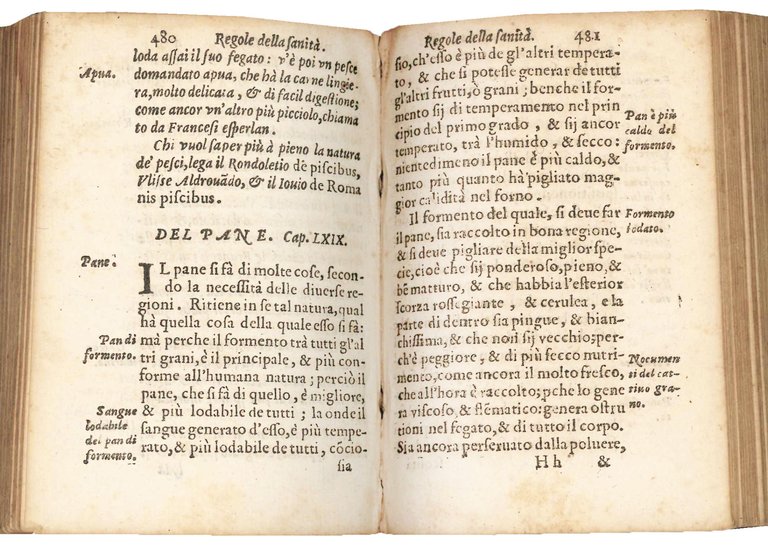 480 Regole della sanità.
loda aſſai il ſuo fegato: v'è poi vn peſce
Apua. domandato apua, che hà la carne lingie-
ra, molto delicata, & di facil digeſtione;
come ancor vn'altro più picciolo, chiama
to da Franceſi eſperlan.
Chi vuol ſaper più à pieno la natura
de' peſci, lega il Rondoletio de piſcibus,
Vliſſe Aldrouãdo, & il Iouio de Roma
nis piſcibus.
DEL PANE. Cap. LXIX.
Pane. IL pane ſi fà di molte coſe, ſecon-
do la neceſſità delle diuerſe re-
gioni. Ritiene in ſe tal natura, qual
hà quella coſa della quale eſſo ſi fà:
Pan di mà perche il formento trà tutti gl'al
formento. tri grani, è il principale, & più con-
forme all'humana natura; perciò il
pane, che ſi fà di quello, è migliore,
Sangue & più lodabile de tutti; la onde il
lodabile ſangue generato d'eſſo, è più tempe-
del pan di rato, & più lodabile de tutti, cõcio-
formento. ſia
Regole della ſanità. 481
ſio, ch'eſſo è più de gl'altri tempera-
to, & che ſi poteſſe generar de tutti
gl'altri frutti, ò grani; benche il for-
mento ſij di temperamento nel prin
cipio del primo grado, & ſij ancor Pan è più
temperato, trà l'humido, & ſecco: caldo del
nientedimeno il pane è più caldo, & formento.
tanto più quanto hà pigliato mag-
gior calidità nel forno.
Il formento del quale, ſi deue far Formento
il pane, ſia raccolto in bona regione, lodato.
& ſi deue pigliare della miglior ſpe-
cie, cioè che ſij ponderoſo, pieno, &
bẽ matturo, & che habbia l'eſterior
ſcorza roſſegiante, & cerulea, e la
parte di dentro ſia pingue, & bian-
chiſſima, & che non ſij vecchio; per-
ch'è peggiore, & di più ſecco nutri- Nocumen
mento, come ancora il molto freſco, ti del cat-
che all'hora è raccolto; pche lo gene tiuo gra-
ra viſcoſo, & flẽmatico: genera oſtru no.
tioni nel fegato, & di tutto il corpo.
Sia ancora perſeruato dalla poluere,
H h &